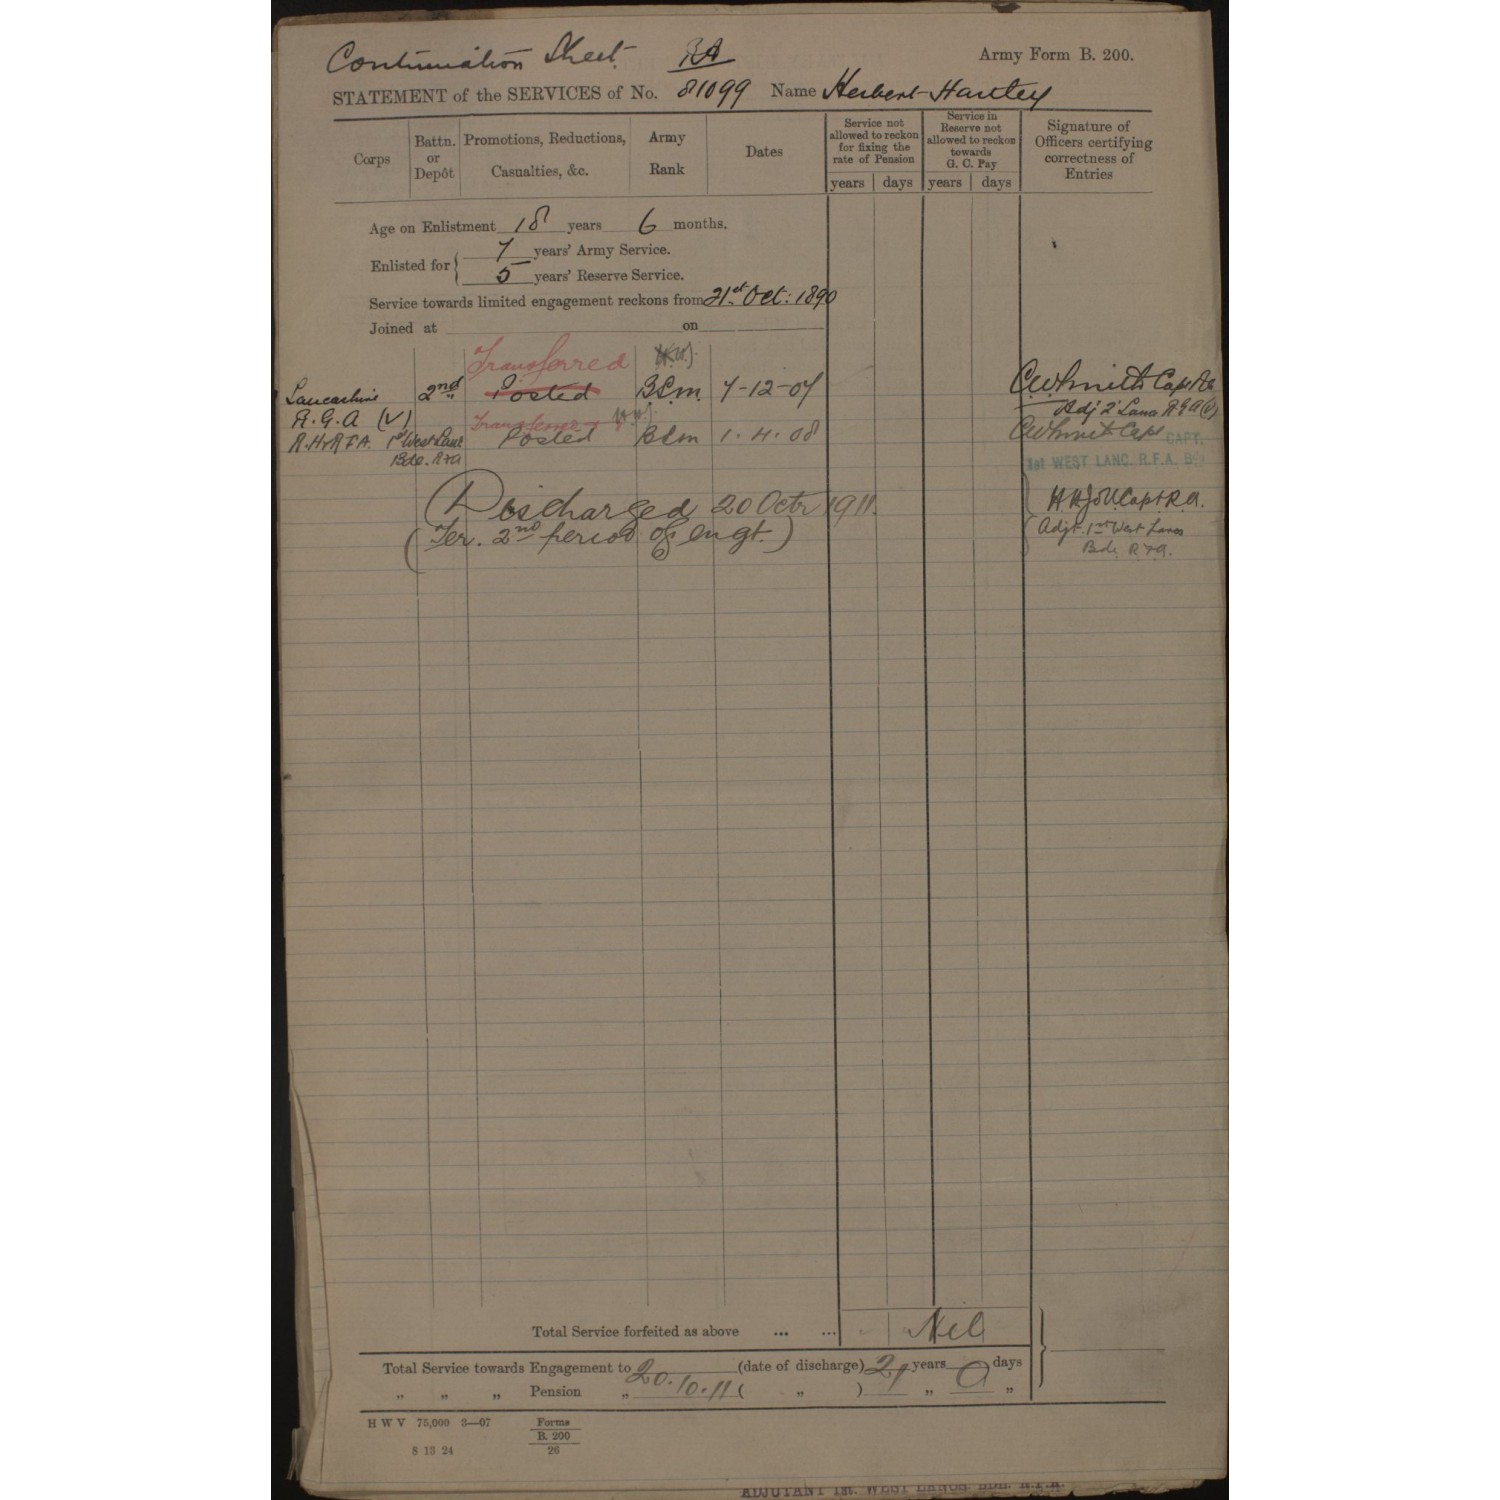 Continuation Sheet. RA
Army Form B. 200.
STATEMENT of the SERVICES of No. 81099 Name Herbert Hartley
Corps
Battn. or Depôt
Promotions, Reductions, Casualties, &c.
Army Rank
Dates
Service not allowed to reckon for fixing the rate of Pension
Service in Reserve not allowed to reckon towards G. C. Pay
Signature of Officers certifying correctness of Entries
years days years days
Age on Enlistment 18 years 6 months.
Enlisted for
7 years' Army Service.
5 years' Reserve Service.
Service towards limited engagement reckons from 21st Oct: 1890
Joined at on
Transferred
Lancashire 2nd Posted B.S.m. 7-12-07 C.W. Smith Capt RA
R.G.A (V) Adj 2 Lancs R.G.A (V)
Transferred
R.H&RFA. 1st West Lanc Posted BSm 1.4.08 CWSmith Capt CAPT.
Bde. RFA
1st WEST LANC. R.F.A. BD
Discharged 20 Octr 1911. Capt R.A.
(Ter. 2nd period of engt.) Adjt. 1st West Lancs
Bde. RFA.
Total Service forfeited as above ... ... Nil
Total Service towards Engagement to 20.10.11 (date of discharge) 21 years 0 days
„ „ „ Pension „ ( „ ) „ „
H W V 75,000 3—07
Forms
B. 200
26
8 13 24
ADJUTANT 1st. WEST LANCS. BDE. R.F.A.